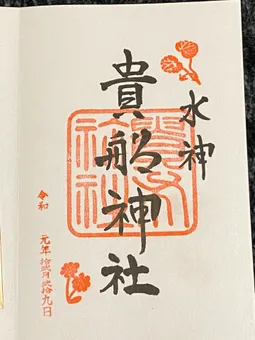 水神
貴船神社
令和 元年 拾弐月弐拾九日